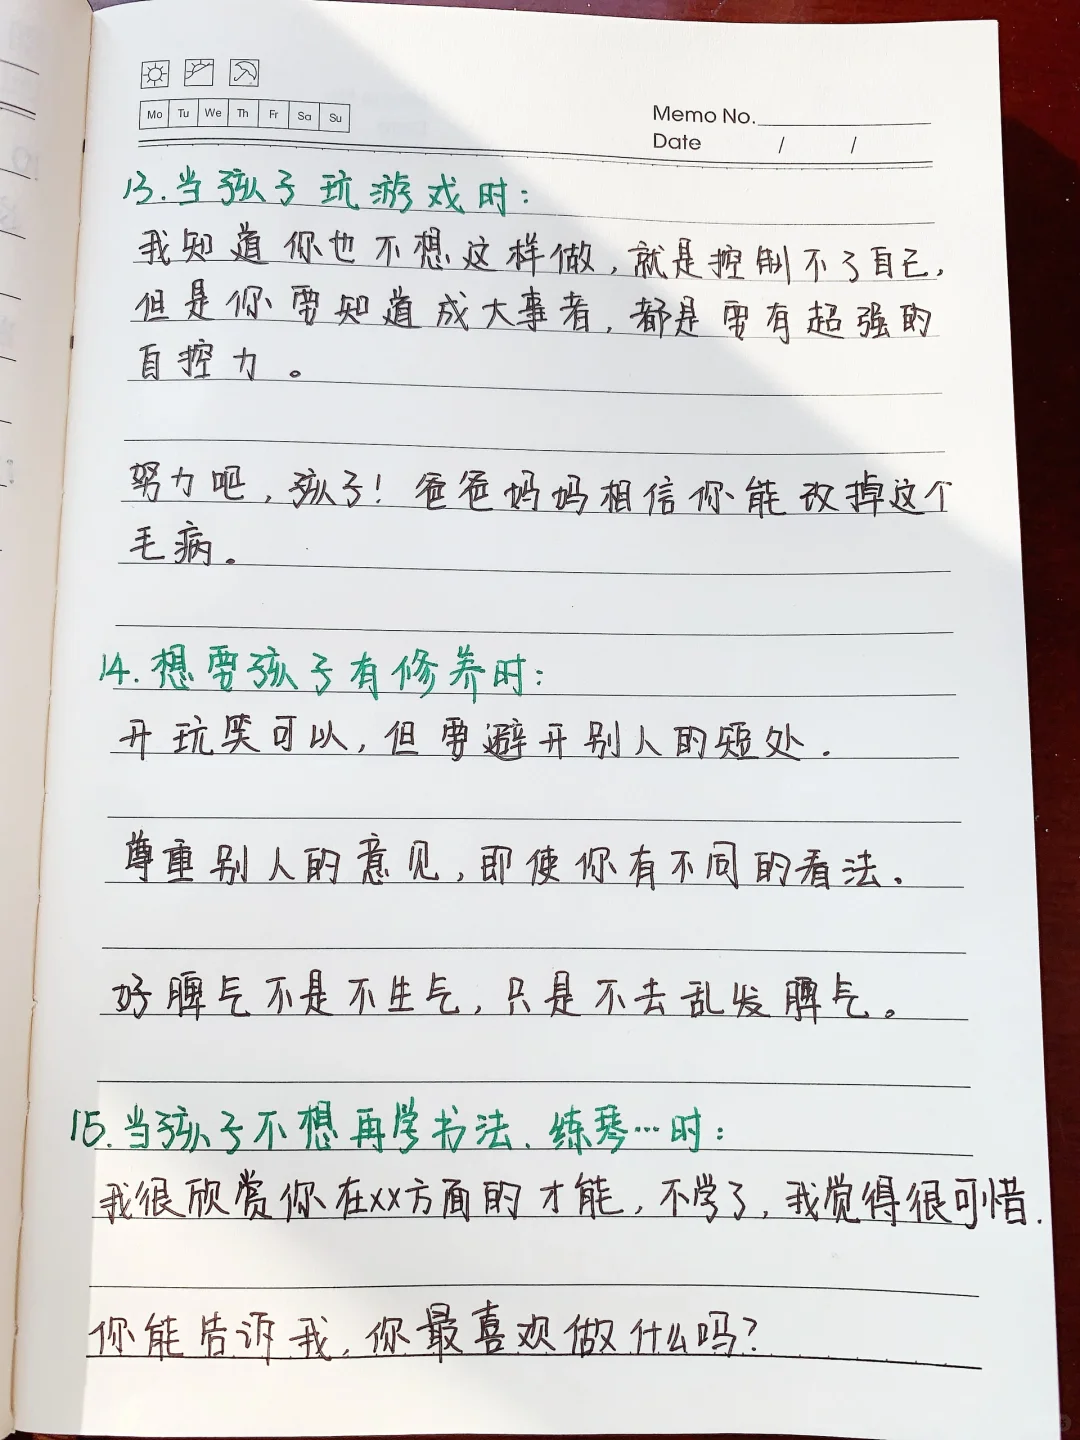 Mo Tu We Th Fr Sa Su
Memo No.
Date / /
13.当孩子玩游戏时：
我知道你也不想这样做，就是控制不了自己，
但是你要知道成大事者，都是要有超强的
自控力。
努力吧，孩子！爸爸妈妈相信你能改掉这个
毛病。
14.想要孩子有修养时：
开玩笑可以，但要避开别人的短处.
尊重别人的意见，即使你有不同的看法.
好脾气不是不生气，只是不去乱发脾气。
15.当孩子不想再学书法、练琴…时：
我很欣赏你在xx方面的才能，不学了，我觉得很可惜.
你能告诉我，你最喜欢做什么吗？